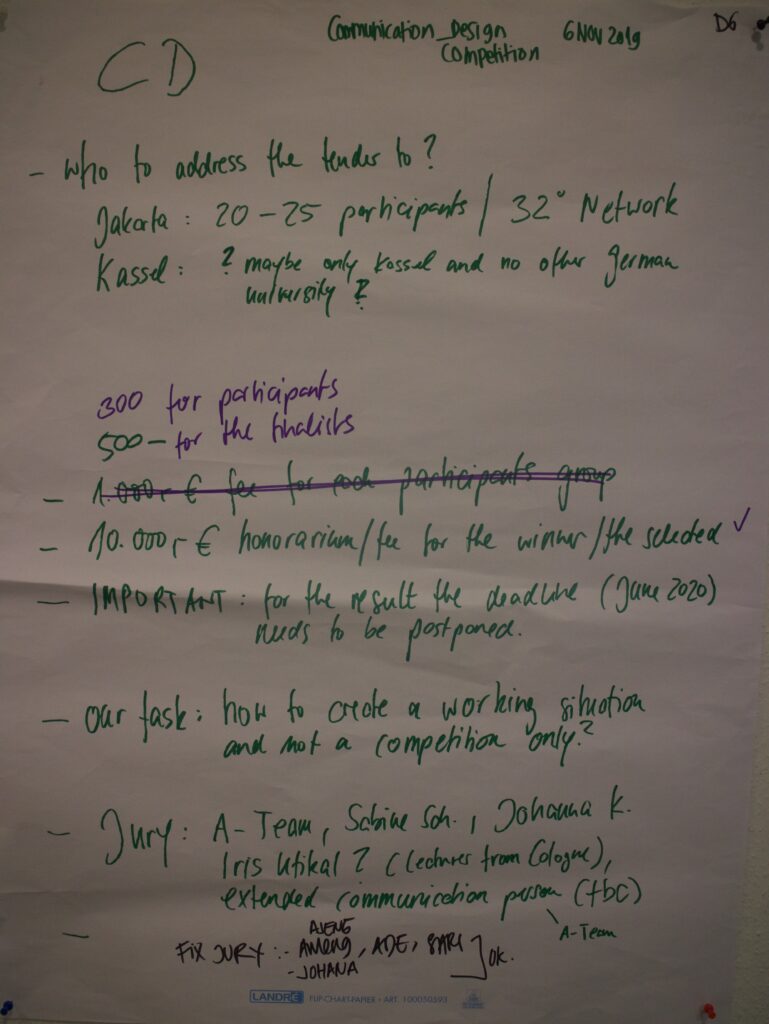 Communication_Design 6 NOV 2019 D6
Competition
CD
- who to address the tender to?
Jakarta : 20 - 25 participants / 32° Network
Kassel : ? maybe only Kassel and no other German
university ?
300 for participants
500 - for the finalists
- 1.000,- € fee for each participants group
- 10.000,- € honorarium/fee for the winner/the selected ✓
- IMPORTANT : for the result the deadline (June 2020)
needs to be postponed.
- our task : how to create a working situation
and not a competition only?
- Jury : A-Team, Sabine Sch., Johanna K.
Iris Utikal ? (Lectures from Cologne),
extended communication person (tbc)
A-Team
-
AJENG
FIX JURY : - AMENG, ADE, SARI ] OK.
- JOHANA
LANDRÉ FLIP-CHART-PAPIER • ART. 100050593